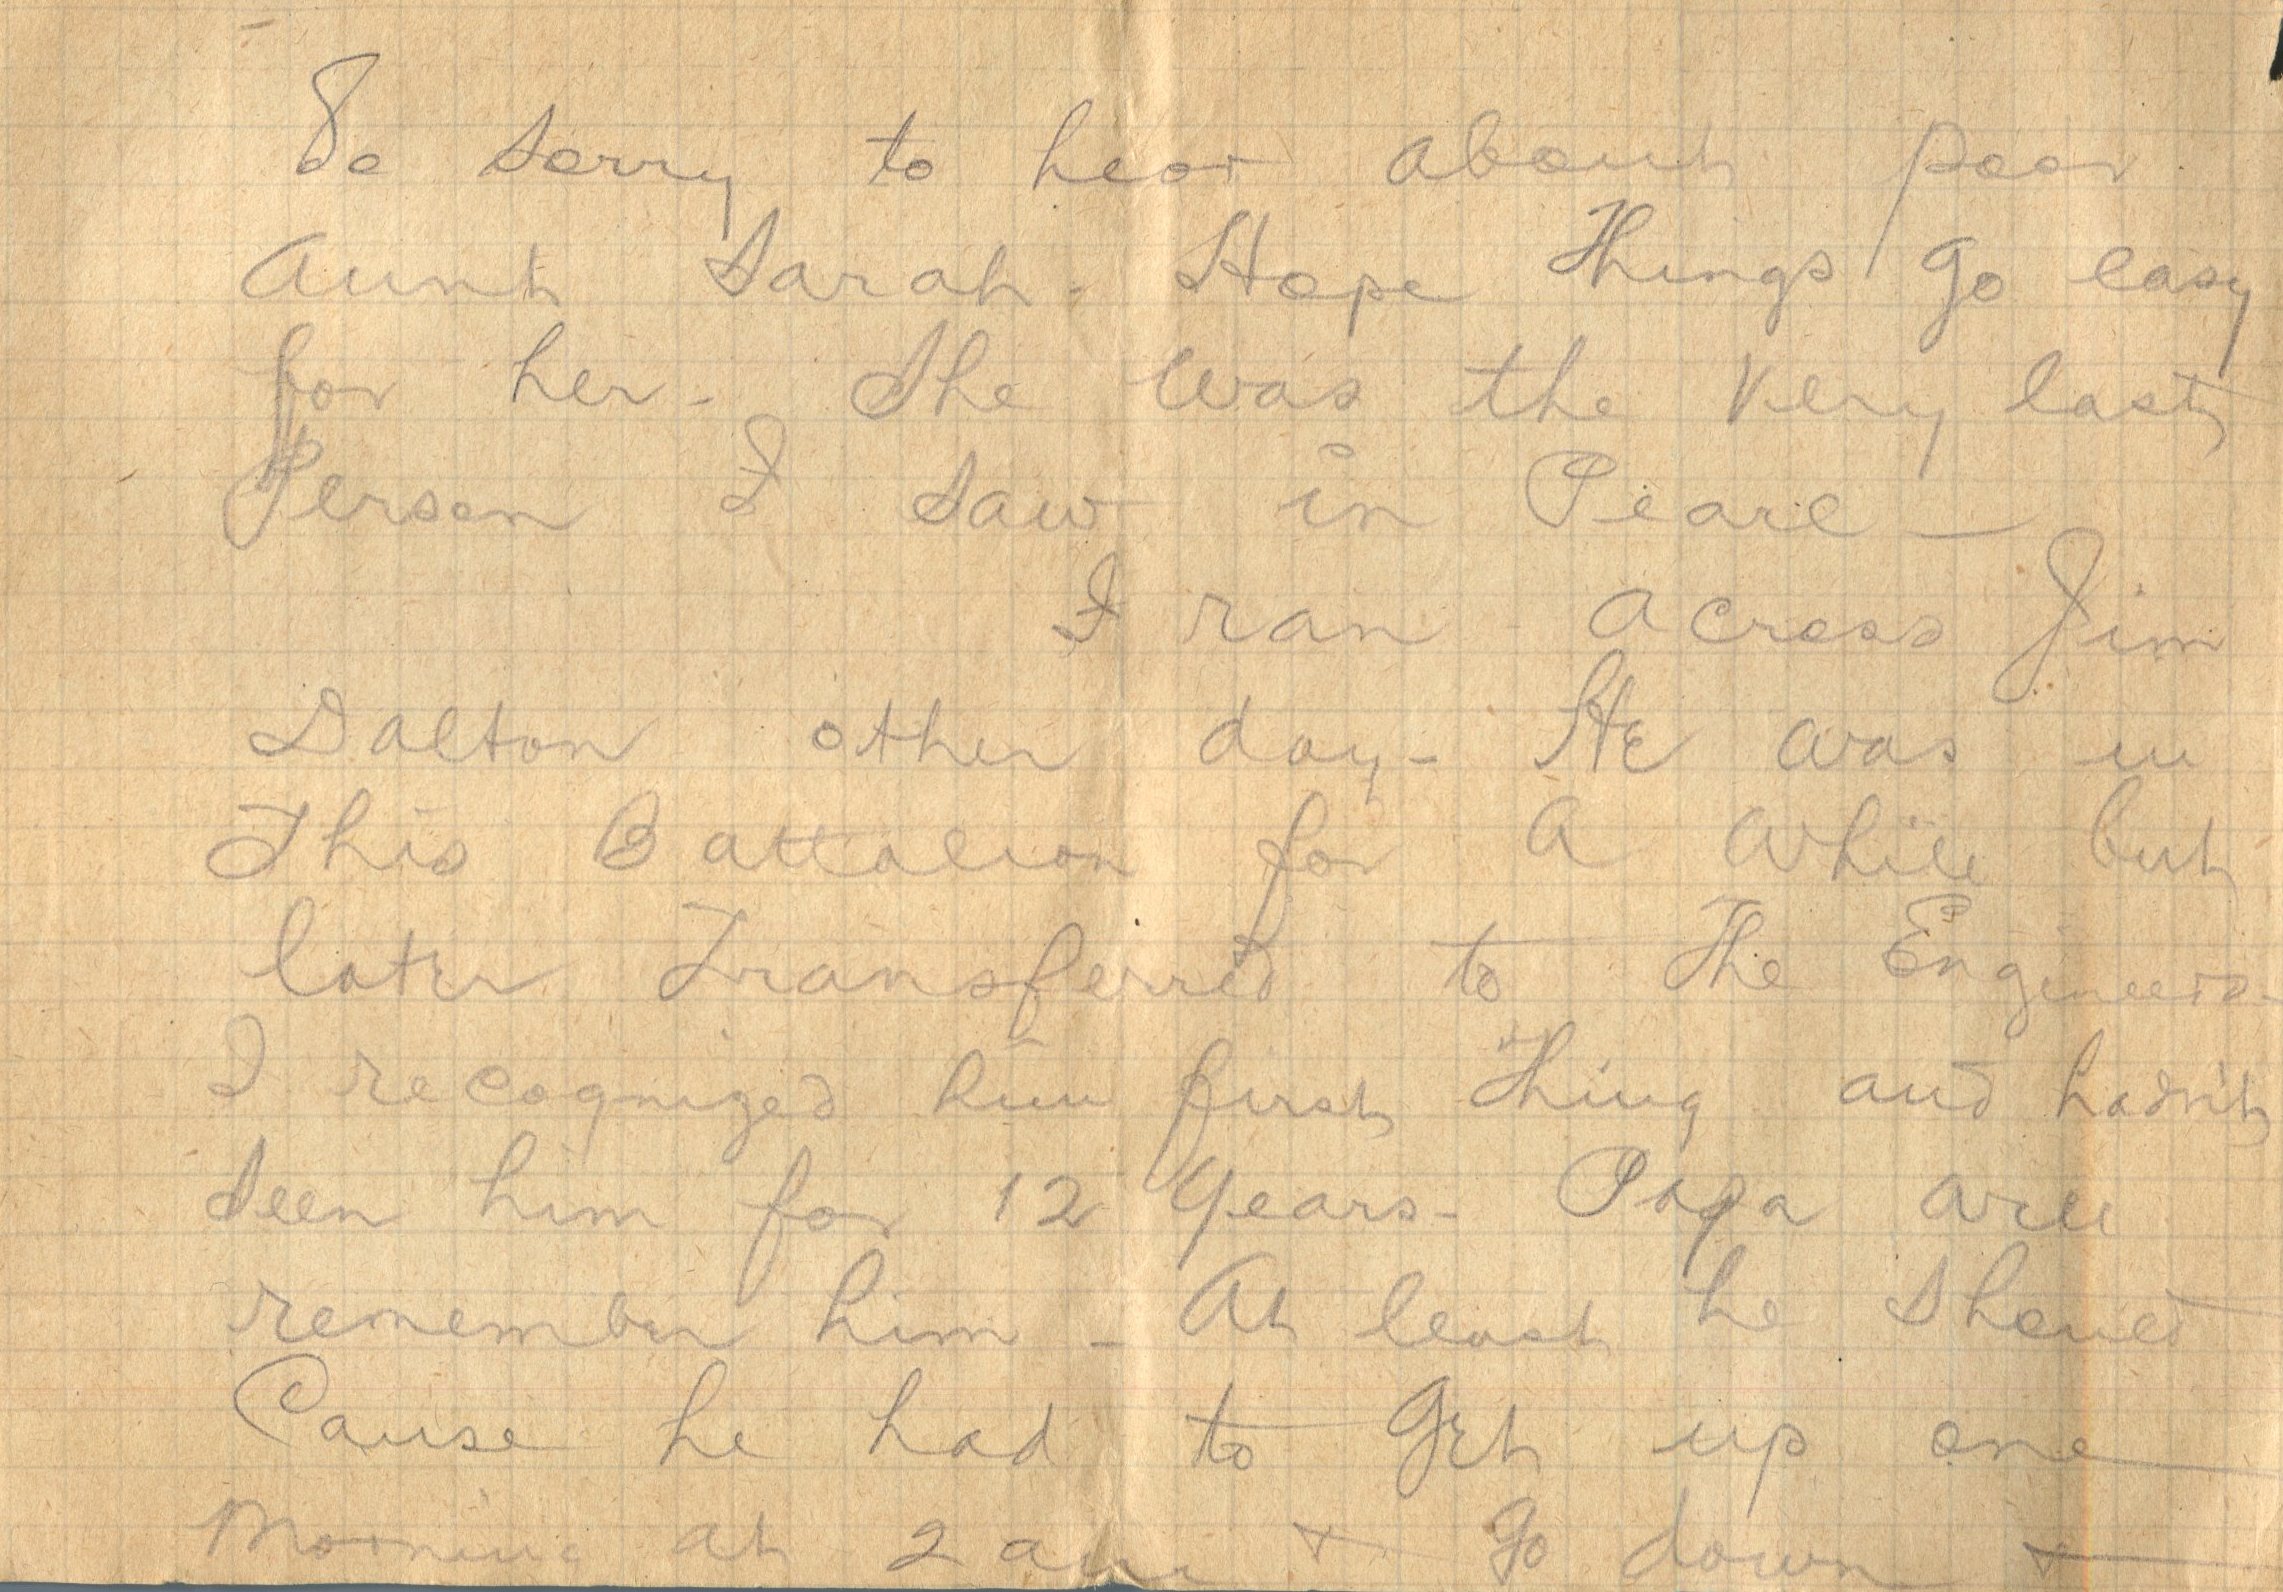 So sorry to hear about poor
Aunt Sarah - Hope Things go easy
for her - She was the very last
Person I saw in Pearl -
I ran across Jim
Dalton other day - He was in
This Battalion for a while but
later Transferred to The Engineers -
I recognized him first Thing and hadn't
seen him for 12 years - Papa will
remember him - At least he should
Cause he had to get up one
Morning at 2 am + go down +